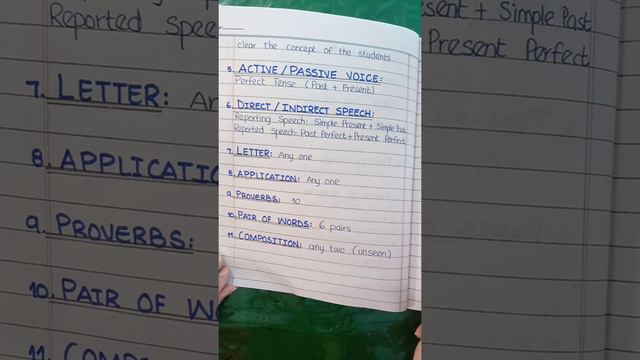 clear the concept of the students.
5. ACTIVE/PASSIVE VOICE:
Perfect Tense (Past + Present)
6. DIRECT/INDIRECT SPEECH:
Reporting Speech: Simple Present + Simple Past
Reported Speech: Past Perfect + Present Perfect
7. LETTER: Any one
8. APPLICATION: Any one
9. PROVERBS: 10
10. PAIR OF WORDS: 6 pairs
11. COMPOSITION: any two (unseen)